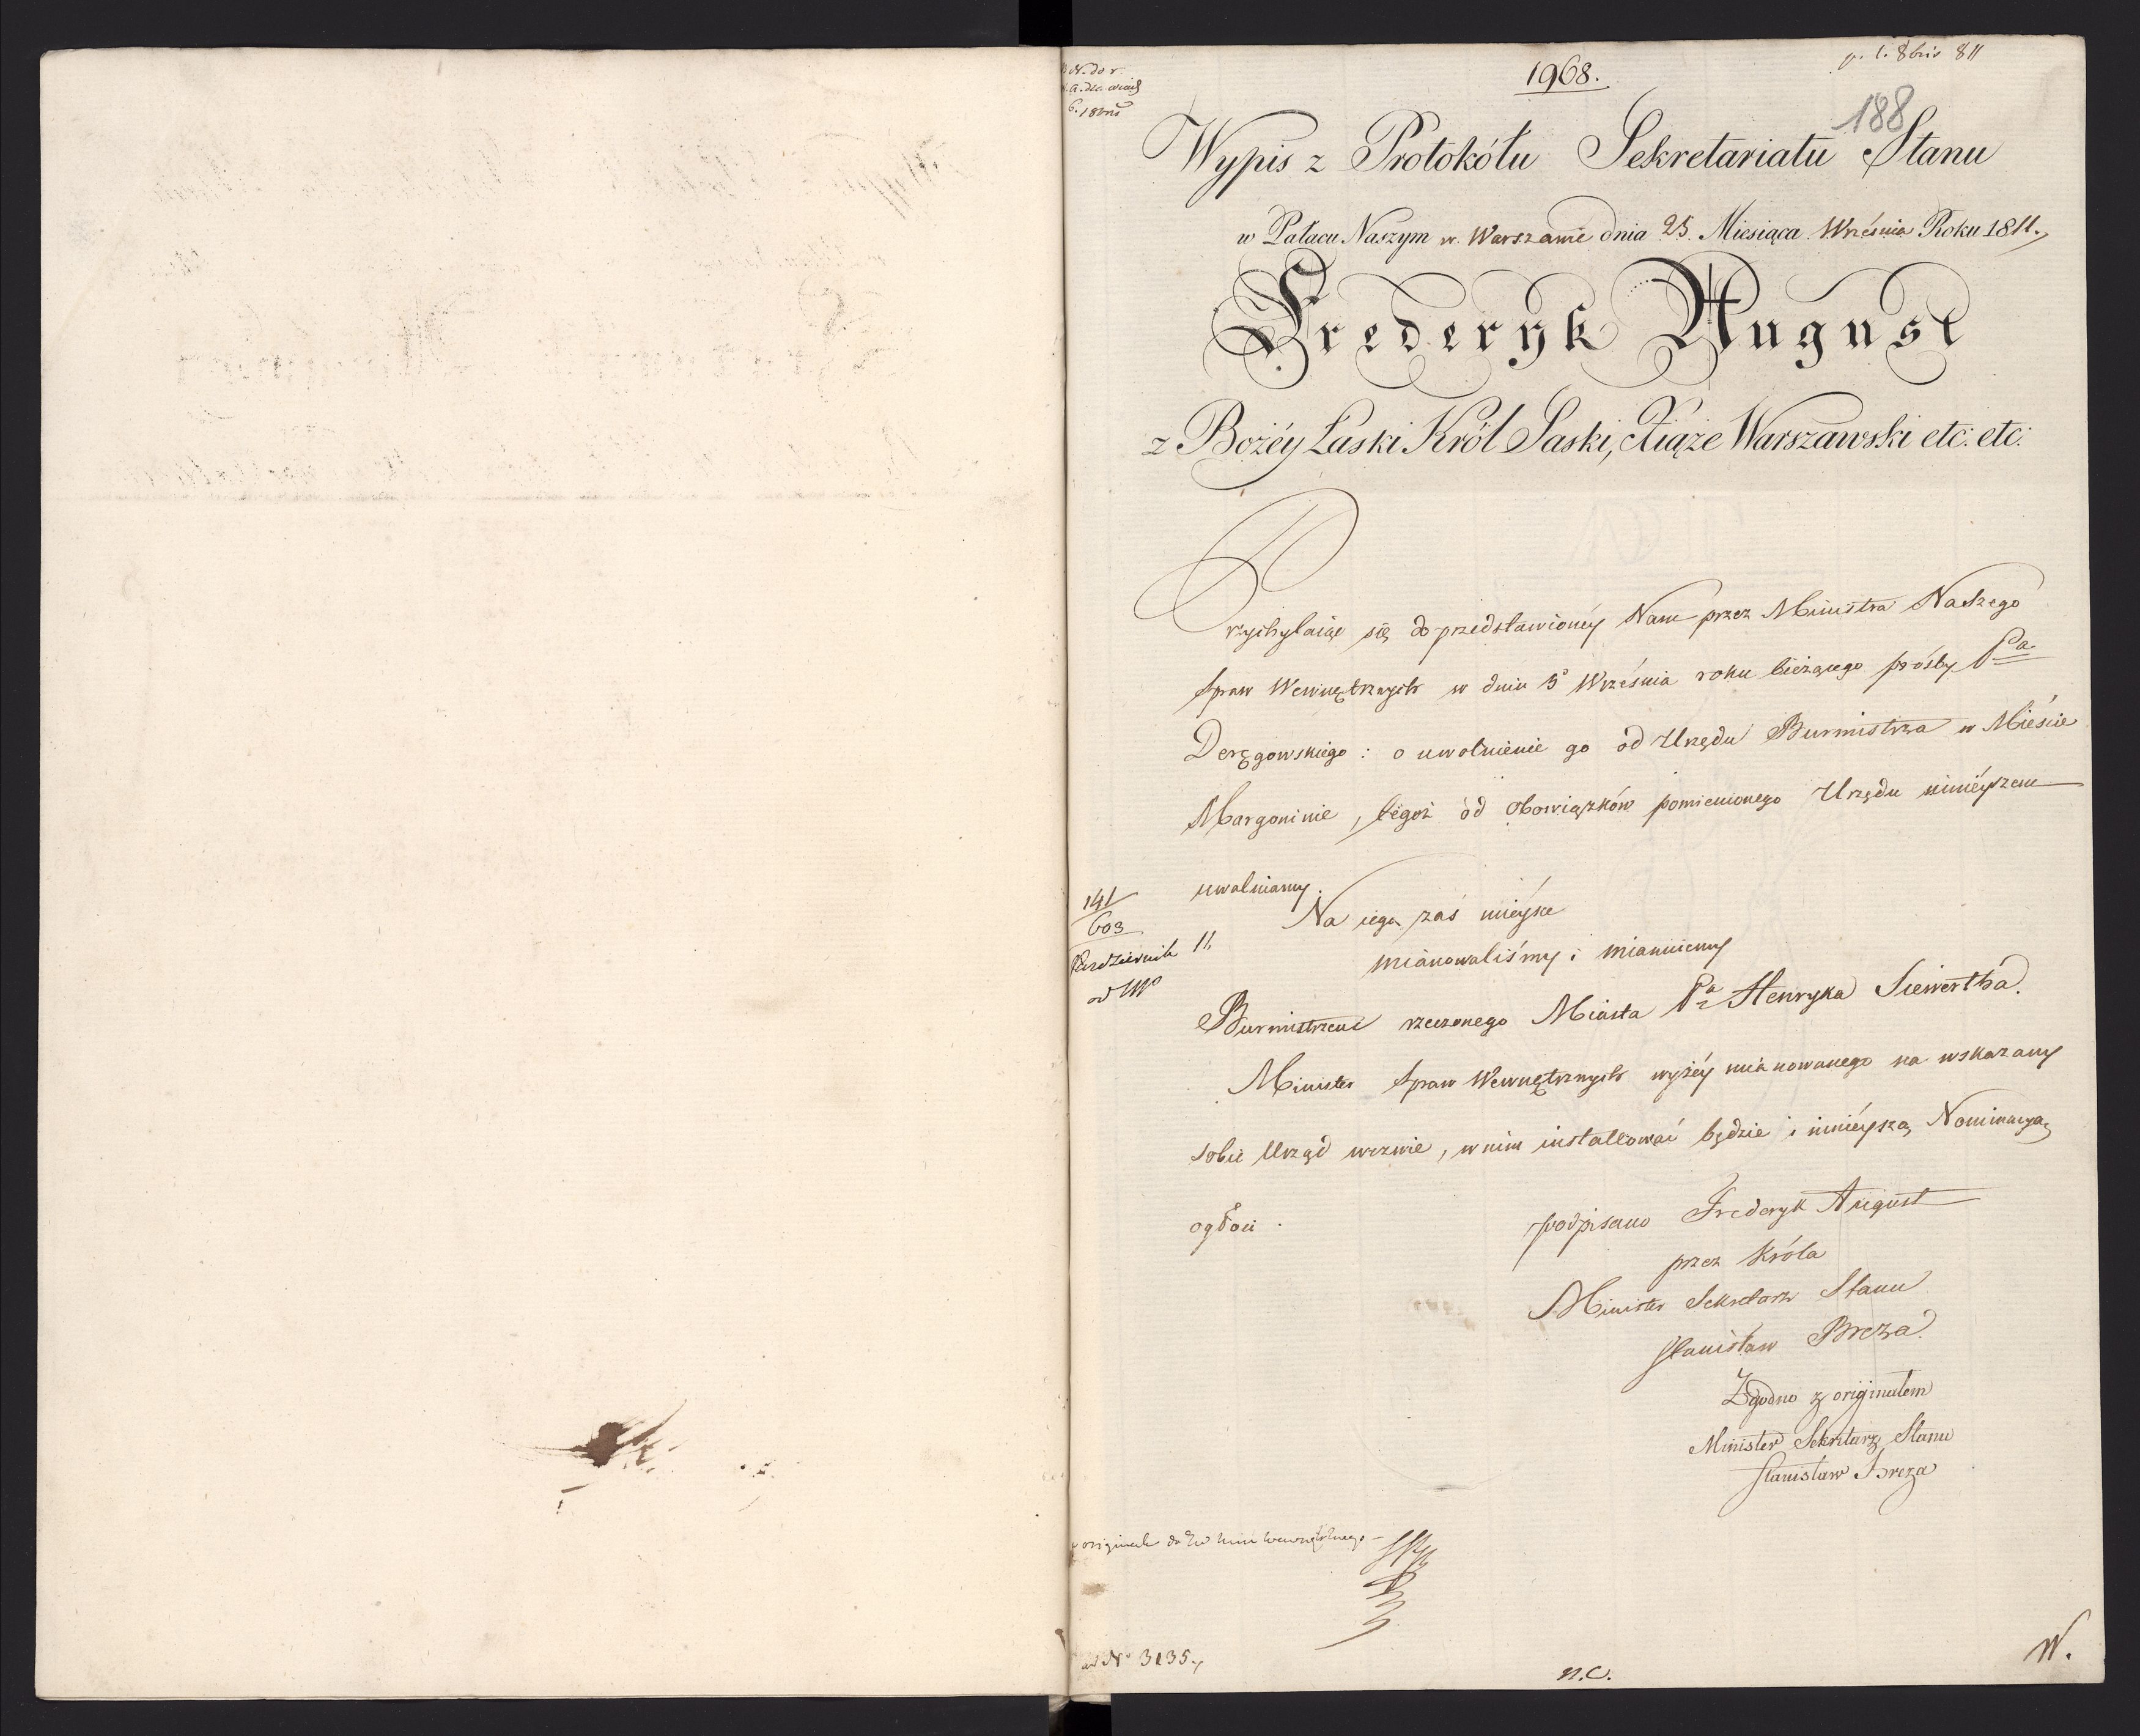 1968.
188
Wypis z Protokółu Sekretariatu Stanu
w Pałacu Naszym w Warszawie dnia 25. Miesiąca Września Roku 1811.
Frederyk August
z Bożéy Łaski Król Saski, Xiąże Warszawski etc: etc:
Przychylaiąc się do przedstawioney Nam przez Ministra Naszego
Spraw Wewnętrznych w dniu 5 Września roku bieżącego prośby Pa
Deręgowskiego : o uwolnienie go od Urzędu Burmistrza w Mieście
Margoninie, tegoż od obowiązków pomienionego Urzędu ninieyszem
uwalniamy.
Na iego zaś mieysce
mianowaliśmy i mianuiemy
141
603
Październik 11
Burmistrzem rzeczonego Miasta Pa Henryka Siewertha.
Minister Spraw Wewnętrznych wyżéy mianowanego na wskazany
sobie Urząd wezwie, w nim installować będzie i ninieyszą Nominacyą
ogłosi.
podpisano Frederyk August
przez Króla
Minister Sekretarz Stanu
Stanisław Breza
Zgodno z originałem
Minister Sekretarz Stanu
Stanisław Breza
ad No 3135.
n.c.
W.